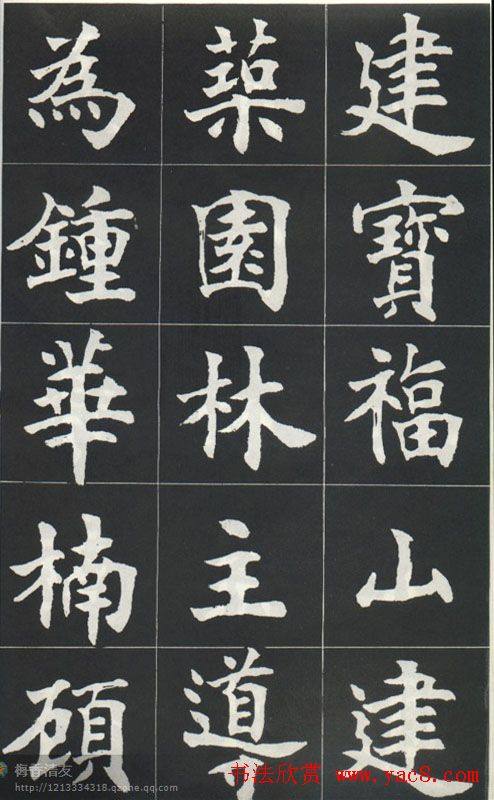 建寶福山建
築園林主導
為鍾華楠碩
梅香清友
http://1213334318.qzone.qq.com
书法欣赏 www.yac8.com